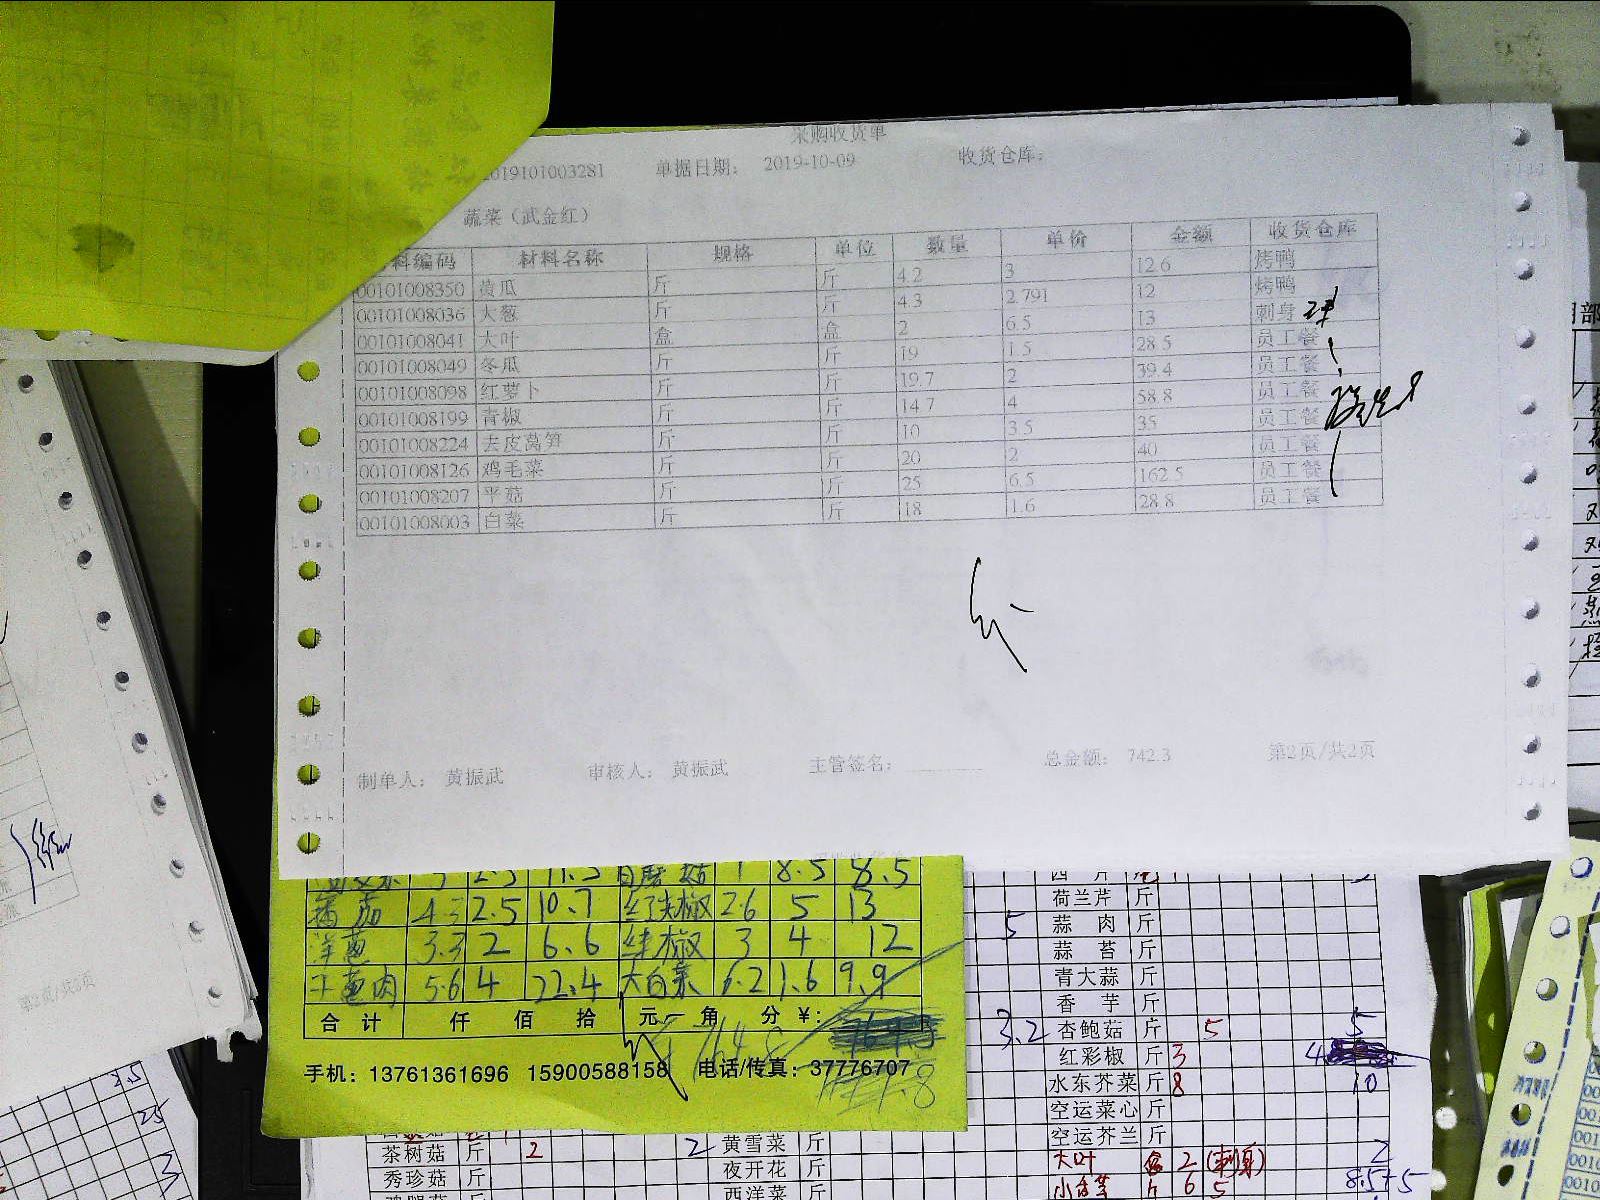 采购收货单
2019101003281 单据日期： 2019-10-09 收货仓库：
蔬菜（武金红）
料编码 材料名称 规格 单位 数量 单价 金额 收货仓库
00101008350 黄瓜 斤 斤 4.2 3 12.6 烤鸭
00101008036 大葱 斤 斤 4.3 2.791 12 烤鸭
00101008041 大叶 盒 盒 2 6.5 13 刺身
00101008049 冬瓜 斤 斤 19 1.5 28.5 员工餐
00101008098 红萝卜 斤 斤 19.7 2 39.4 员工餐
00101008199 青椒 斤 斤 14.7 4 58.8 员工餐
00101008224 去皮莴笋 斤 斤 10 3.5 35 员工餐
00101008126 鸡毛菜 斤 斤 20 2 40 员工餐
00101008207 平菇 斤 斤 25 6.5 162.5 员工餐
00101008003 白菜 斤 斤 18 1.6 28.8 员工餐
制单人： 黄振武 审核人： 黄振武 主管签名： 总金额： 742.3 第2页/共2页
8.5 8.5
番茄 4.3 2.5 10.7 红尖椒 2.6 5 13
洋葱 3.3 2 6.6 青椒 3 4 12
干葱肉 5.6 4 22.4 大白菜 6.2 1.6 9.9
合计 仟 佰 拾 元 角 分 ¥:
手机：13761361696 15900588158 电话/传真：37776707
西芹
荷兰芹 斤
5 蒜肉 斤
蒜苔 斤
青大蒜 斤
香芋 斤
3.2 杏鲍菇 斤 5 5
红彩椒 斤 3 4
水东芥菜 斤 8 10
空运菜心 斤
空运芥兰 斤
大叶 盒 2 (刺身) 2
6 5 8.5+5
茶树菇 斤 2 2 黄雪菜 斤
秀珍菇 斤 夜开花 斤
西洋菜 斤
第2页/共2页
2.5
25
3